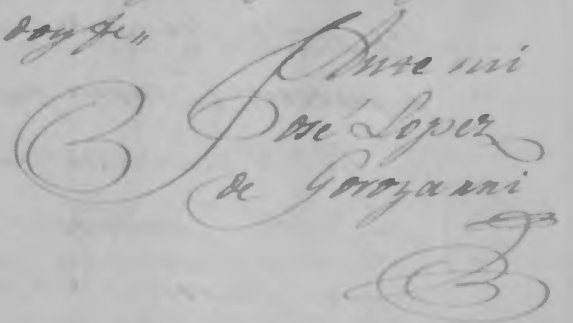 doy fe„
Ante mi
José Lopez
de Gorozanni